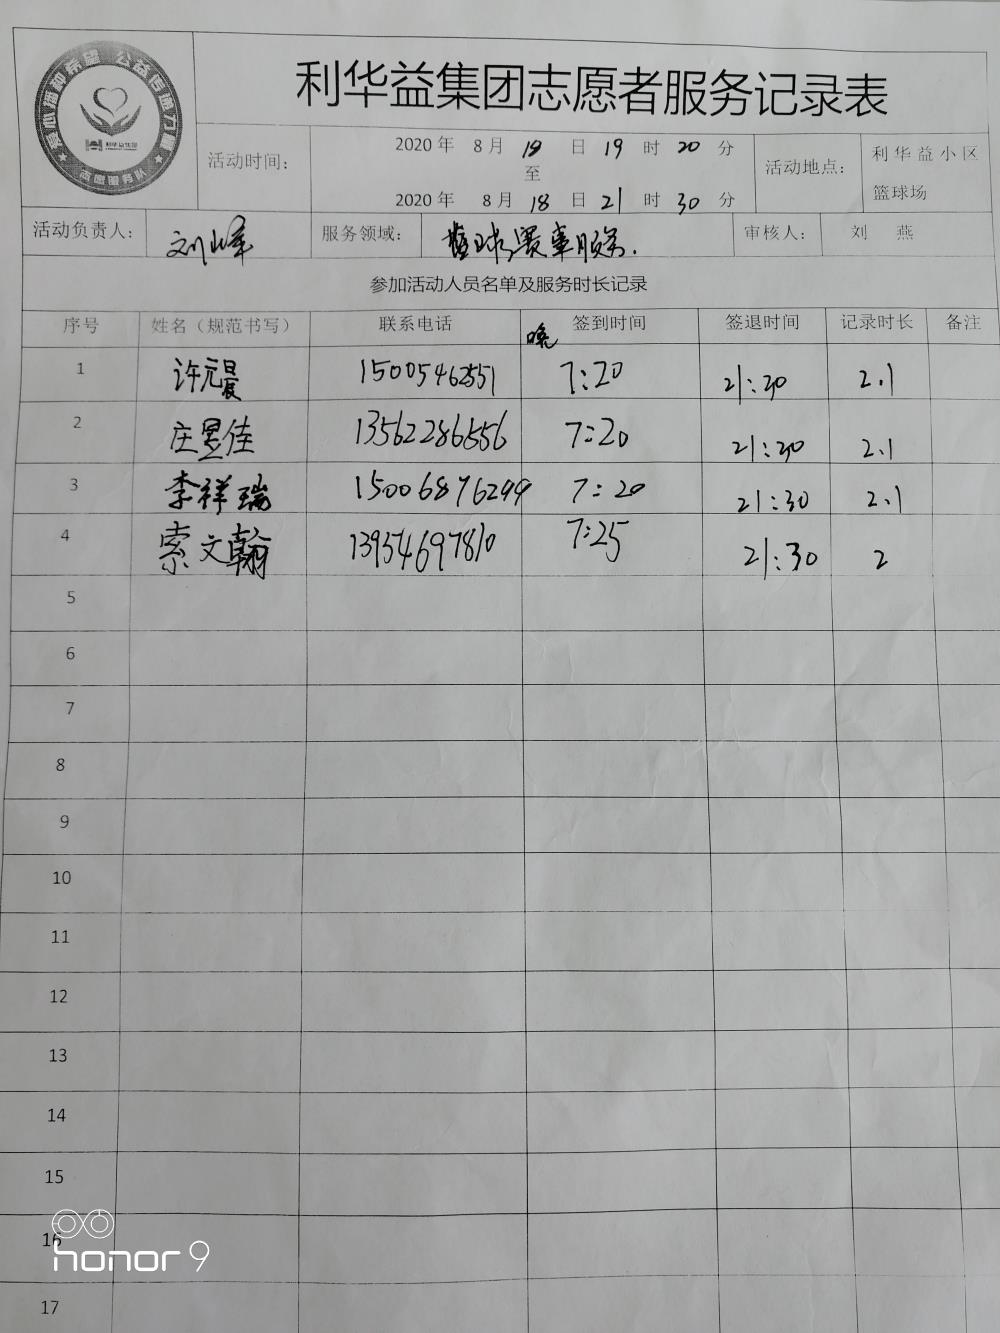 爱心播种希望 公益传递力量
利华益集团
志愿服务队
利华益集团志愿者服务记录表
活动时间：
2020 年 8 月 18 日 19 时 20 分
至
2020 年 8 月 18 日 21 时 30 分
活动地点：
利华益小区
篮球场
活动负责人： 刘峰 服务领域： 篮球赛事服务. 审核人： 刘 燕
参加活动人员名单及服务时长记录
序号 姓名（规范书写） 联系电话 晚 签到时间 签退时间 记录时长 备注
1 许元晨 15005462551 7:20 21:30 2.1
2 庄昱佳 13562286556 7:20 21:30 2.1
3 李祥瑞 15006876299 7:20 21:30 2.1
4 索文翰 13954697810 7:25 21:30 2
5
6
7
8
9
10
11
12
13
14
15
16
honor 9
17